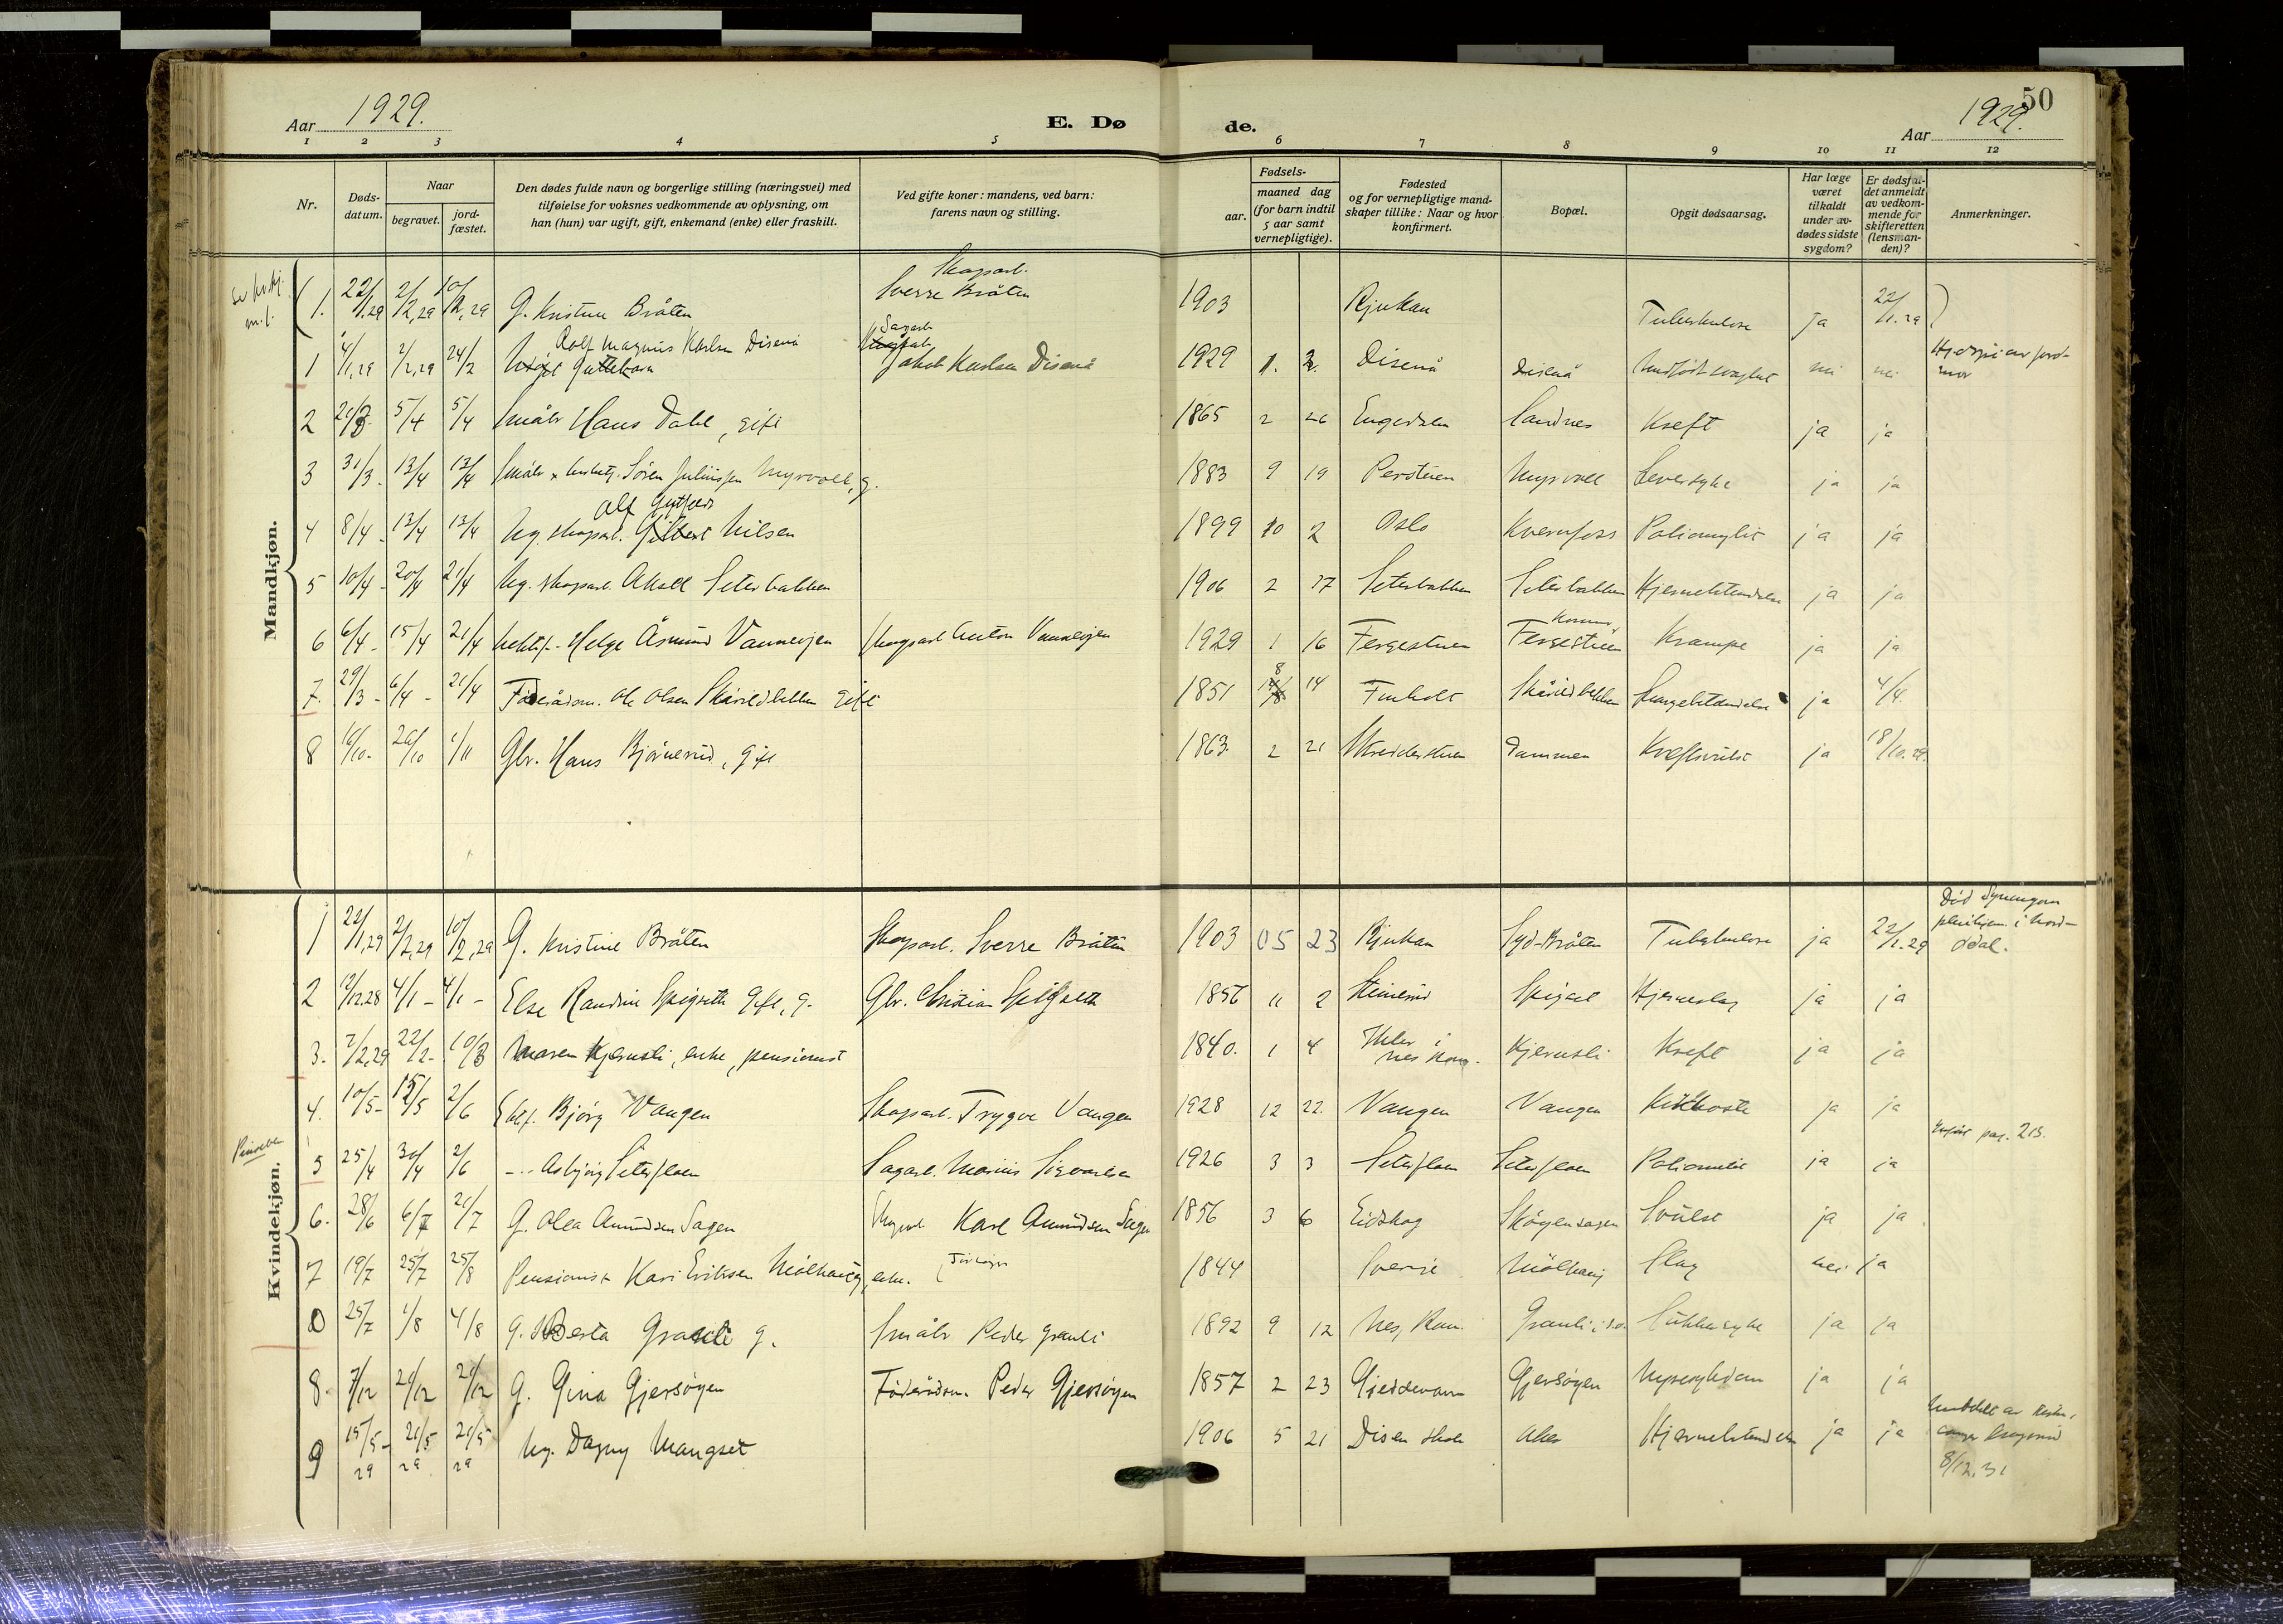 Aar 1929.
E. Døde.
50
Aar 1929.
1 2 3 4 5 6 7 8 9 10 11 12
Nr.
Døds-datum.
Naar
begravet.
jord-fæstet.
Den dødes fulde navn og borgerlige stilling (næringsvei) med
tilføielse for voksnes vedkommende av oplysning, om
han (hun) var ugift, gift, enkemand (enke) eller fraskilt.
Ved gifte koner: mandens, ved barn:
farens navn og stilling.
Fødsels-
aar.
maaned dag
(for barn indtil
5 aar samt
vernepligtige).
Fødested
og for vernepligtige mand-
skaper tillike: Naar og hvor
konfirmert.
Bopæl.
Opgit dødsaarsag.
Har læge
været
tilkaldt
under av-
dødes sidste
sygdom?
Er dødsfal-
det anmeldt
av vedkom-
mende for
skifteretten
(lensman-
den)?
Anmerkninger.
Mandkjøn.
Skogsarb.
1. 22/1.29 2/2.29 10/2.29 G. Kristine Bråten Sverre Bråten 1903 Rjukan Tuberkulose ja 22/1.29
Rolf Magnus Karlsen Disenå Sagarb.
1 4/1.29 2/2.29 24/2 Guttebarn Jakob Karlsen Disenå 1929 1. Disenå Disenå nei nei
2 5/4 5/4 Småbr Hans Dahl, gift 1865 2 26 Engedalen Sandnes Kreft ja ja
3 31/3. 13/4 13/4 Småbr Sören Juliussen Myrvoll, g. 1883 9 19 Perstuen Myrvoll Leversyke ja ja
Alf
4 8/4 13/4 13/4 Ug. skogsarb. Gilbert Nilsen 1899 10 2 Oslo Kvernfoss Poliomylit ja ja
5 10/4 20/4 21/4 Ug. skogsarb. Aksel Seterbakken 1906 2 17 Seterbakken Seterbakken Hjernebetendelse ja ja
6 6/4 15/4 21/4 Helge Åsmund Vannevjen Skogsarb Anton Vannevjen 1929 1 16 Fergestuen Fergestuen Krampe ja ja
7. 29/3 6/4 21/4 Føderådsm. Ole Olsen Skårildbekken gift 1851 8 14 Finholt Skårildbekken Lungebetændelse ja 4/4.
8 16/10 26/10 1/11 Gbr. Hans Bjørnerud, gift 1863 2 21 Dammen Kreftsvulst ja 18/10.29.
Kvindekjøn.
1 22/1.29 2/2.29 10/2.29 G. Kristine Bråten Skogsarb. Sverre Bråten 1903 05 23 Rjukan Syd-Bråten Tuberkulose ja 22/1.29 Død pleiehjem i Nord-Odal.
2 4/1 4/1 Else Randine Spigseth gift, g. Gbr. Kristian Spigseth 1856 11 2 Steinerud Spigset Hjerneslag ja ja
3. 7/2.29 22/2 10/3 Maren Kjernsli, enke, pensionist 1840. 1 4 Nes Rom. Kjernsli Kreft ja ja
4. 10/5 15/5 2/6 Ektef. Bjørg Vangen Skogsarb. Trygve Vangen 1928 12 22. Vangen Vangen Kikhoste ja ja
5 25/4 30/4 2/6 Asbjørg Seterfloen Sagarb. Marius Sigvartsen 1926 3 3 Seterfloen Seterfloen Poliomelit ja ja pag. 213.
6. 28/6 6/7 21/7 G. Olea Amundsen Sagen Skogsarb Karl Amundsen Sagen 1856 3 6 Eidskog Skøyensagen Svulst ja ja
7 19/7 25/7 25/8 Pensionist Kari Eriksen Mølhaug, enke. 1844 Sverige Mølhaug Slag nei. ja
25/7 1/8 4/8 G. Berta Granli g. Småbr Peder Granli 1892 9 12 Nes, Rom. Granli Sukkersyke ja ja
8. 7/12 21/12 21/12 G. Gina Gjersøyen Føderådsm. Peder Gjersøyen 1857 2 23 Gjeddevann Gjersøyen Nyresykdom ja ja
9 15/5 29 21/5 29 21/5 29 Ug. Dagny Mangset 1906 5 21 Disen skole Aker Hjernebetendelse ja ja
8/12.31